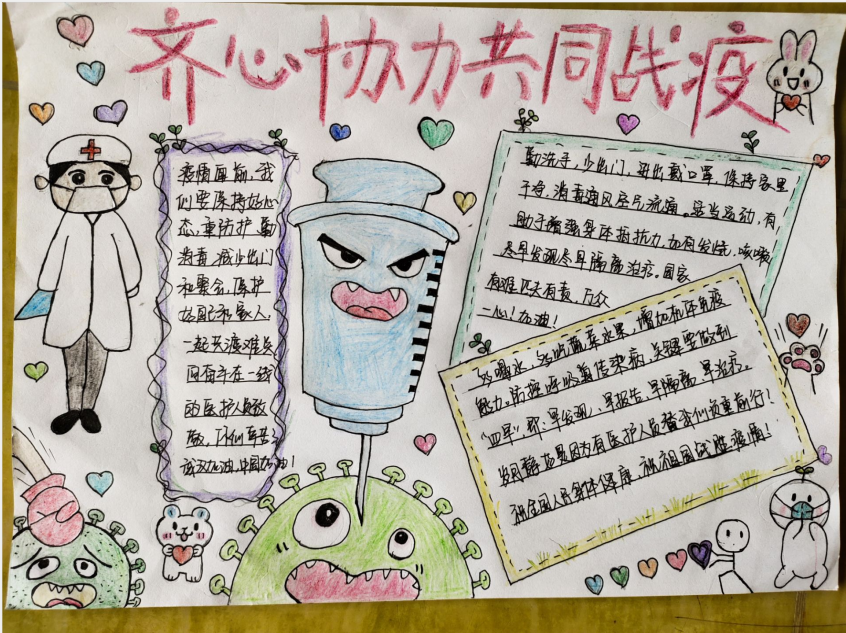 齐心协力共同战疫
疫情面前,我
们要保持好心
态,重防护,勤
消毒,减少出门
和聚会,保护
好自己和家人,
一起共渡难关
同有许在一线
的医护人员致
敬,你们辛苦
武汉加油,中国加油!
勤洗手,少出门,进出戴口罩,保持家里
干净,消毒通风空气流通。适当运动,有
助于增强身体抵抗力,如有发烧,咳嗽
尽早发现尽早隔离治疗。国家
有难匹夫有责,万众
一心!加油!
多喝水,多吃蔬菜水果,增加机体免疫
能力,防控呼吸道传染病,关键要做到
“四早”,即:早发现、早报告、早隔离、早治疗。
岁月静好是因为有医护人员替我们负重前行!
祝全国人民身体健康,祝祖国战胜疫情!